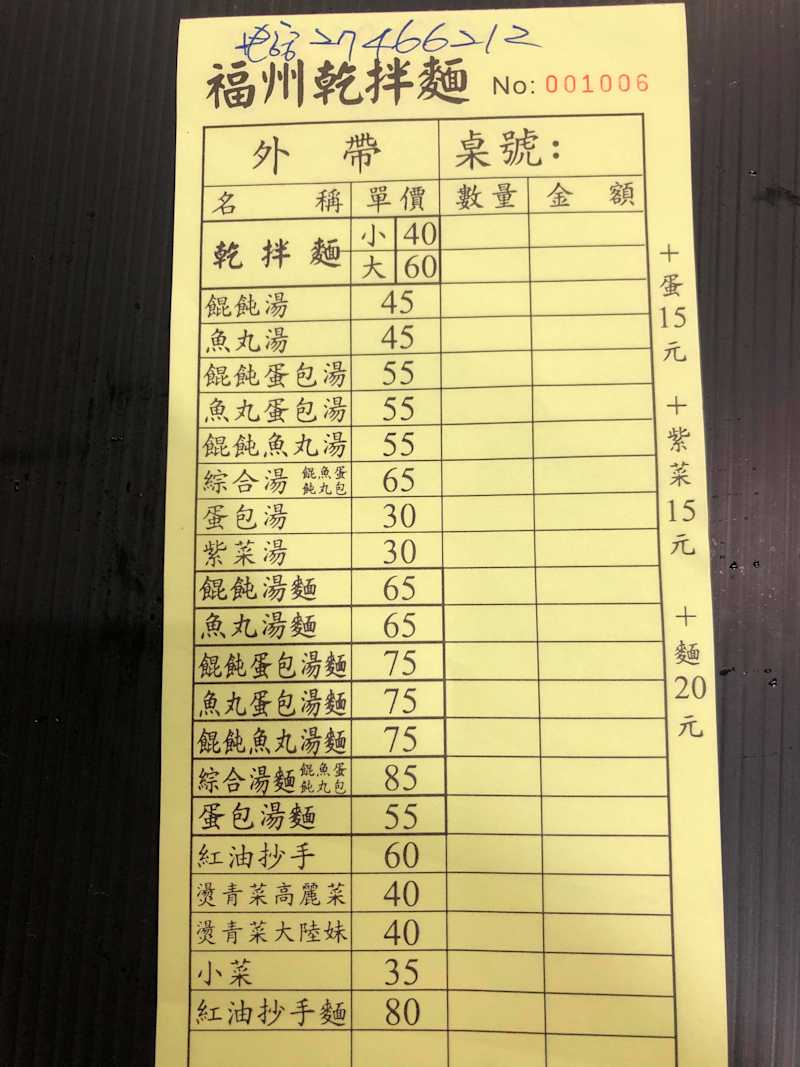 電話27466212
福州乾拌麵 No: 001006
外 帶 桌號:
名 稱 單價 數量 金 額
乾拌麵 小 40
大 60
餛飩湯 45
魚丸湯 45
餛飩蛋包湯 55
魚丸蛋包湯 55
餛飩魚丸湯 55
綜合湯 餛飩魚丸蛋包 65
蛋包湯 30
紫菜湯 30
餛飩湯麵 65
魚丸湯麵 65
餛飩蛋包湯麵 75
魚丸蛋包湯麵 75
餛飩魚丸湯麵 75
綜合湯麵 餛飩魚丸蛋包 85
蛋包湯麵 55
紅油抄手 60
燙青菜高麗菜 40
燙青菜大陸妹 40
小菜 35
紅油抄手麵 80
+蛋15元
+紫菜15元
+麵20元